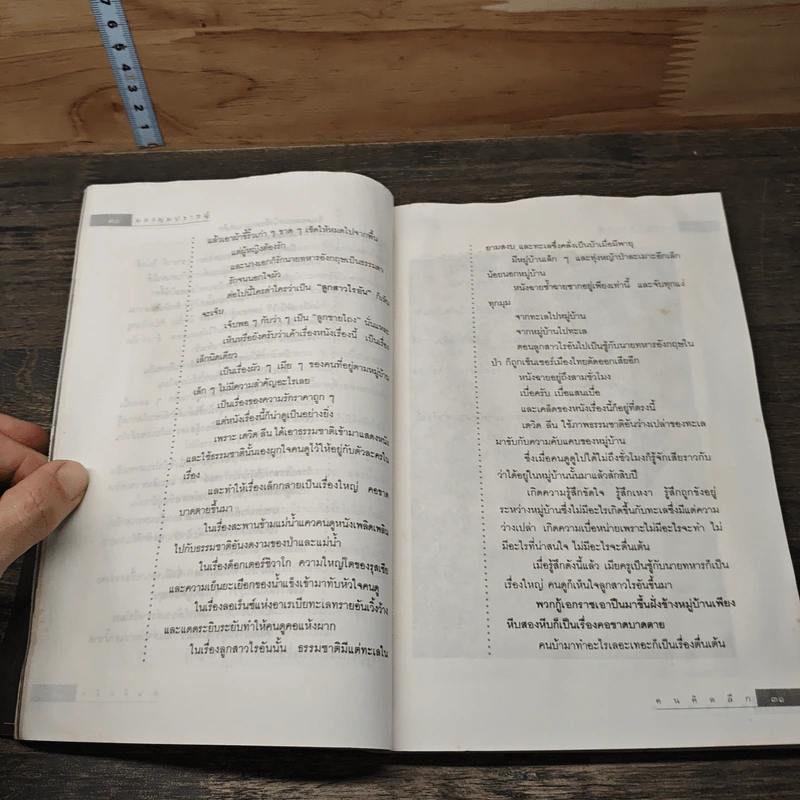 7 6 5 4 3 2 1
๓๐
แล้วเอาผ้าขี้ริ้วเก่า ๆ ขาด ๆ เช็ดให้หมดไปจากพื้น
แต่ผู้หญิงต้องรัก
และนางเอกก็รักนายทหารอังกฤษเป็นธรรมดา
รักจนนอกใจผัว
ต่อไปนี้ใครด่าใครว่าเป็น "ลูกสาวไรอัน" ก็เห็น
จะเจ็บ
เจ็บพอ ๆ กับว่า ๆ เป็น "ลูกชายโกง" นั่นแหละ
เห็นหรือยังครับว่าเค้าเรื่องหนังเรื่องนี้ เป็นเรื่อง
เล็กนิดเดียว
เป็นเรื่องผัว ๆ เมีย ๆ ของคนที่อยู่ตามหมู่บ้าน
เล็ก ๆ ไม่มีความสำคัญอะไรเลย
เป็นเรื่องของความรักราคาถูก ๆ
แต่หนังเรื่องนี้ก็น่าดูเป็นอย่างยิ่ง
เพราะ เดวิด ลีน ได้เอาธรรมชาติเข้ามาแสดงหนัง
และใช้ธรรมชาตินั้นเองผูกใจคนดูไว้ให้อยู่กับตัวละครใน
เรื่อง
และทำให้เรื่องเล็กกลายเป็นเรื่องใหญ่ คอขาด
บาดตายขึ้นมา
ในเรื่องสะพานข้ามแม่น้ำแควคนดูหนังเพลิดเพลิน
ไปกับธรรมชาติอันงดงามของป่าและแม่น้ำ
ในเรื่องด็อกเตอร์ชิวาโก ความใหญ่โตของรุสเซีย
และความเย็นยะเยือกของน้ำแข็งเข้ามาทับหัวใจคนดู
ในเรื่องลอเร็นซ์แห่งอาเรเบียทะเลทรายอันเวิ้งว้าง
และแดดระยิบระยับทำให้คนดูคอแห้งผาก
ในเรื่องลูกสาวไรอันนั้น ธรรมชาติมีแต่ทะเลใน
ยามสงบ และทะเลซึ่งคลั่งเป็นบ้าเมื่อมีพายุ
มีหมู่บ้านเล็ก ๆ และทุ่งหญ้าป่าละเมาะอีกเล็ก
น้อยนอกหมู่บ้าน
หนังฉายซ้ำซากอยู่เพียงเท่านี้ และจับทุกแง่
ทุกมุม
จากทะเลไปหมู่บ้าน
จากหมู่บ้านไปทะเล
ตอนลูกสาวไรอันไปเป็นชู้กับนายทหารอังกฤษใน
ป่า ก็ถูกเซ็นเซอร์เมืองไทยตัดออกเสียอีก
หนังฉายอยู่ถึงสามชั่วโมง
เบื่อครับ เบื่อแสนเบื่อ
และเคล็ดของหนังเรื่องนี้ก็อยู่ที่ตรงนี้
เดวิด ลีน ใช้ภาพธรรมชาติอันว่างเปล่าของทะเล
มาขับกับความคับแคบของหมู่บ้าน
ซึ่งเมื่อคนดูดูไปได้ไม่ถึงชั่วโมงก็รู้จักเสียราวกับ
ว่าได้อยู่ในหมู่บ้านนั้นมาแล้วสักสิบปี
เกิดความรู้สึกขัดใจ รู้สึกเหงา รู้สึกถูกขังอยู่
ระหว่างหมู่บ้านซึ่งไม่มีอะไรเกิดขึ้นกับทะเลซึ่งมีแต่ความ
ว่างเปล่า เกิดความเบื่อหน่ายเพราะไม่มีอะไรจะทำ ไม่
มีอะไรที่น่าสนใจ ไม่มีอะไรจะตื่นเต้น
เมื่อรู้สึกดังนี้แล้ว เมียครูเป็นชู้กับนายทหารก็เป็น
เรื่องใหญ่ คนดูก็เห็นใจลูกสาวไรอันขึ้นมา
พวกกู้เอกราชเอาปืนมาขึ้นฝั่งข้างหมู่บ้านเพียง
หีบสองหีบก็เป็นเรื่องคอขาดบาดตาย
คนบ้ามาทำอะไรเลอะเทอะก็เป็นเรื่องตื่นเต้น
คนคิดลึก ๓๑